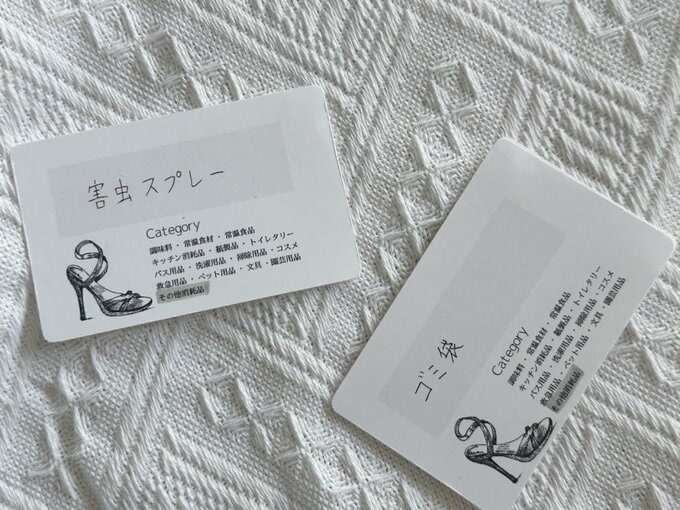 害虫スプレー
Category
調味料・常温食材・常温食品
キッチン消耗品・紙製品・トイレタリー
バス用品・洗濯用品・掃除用品・コスメ
救急用品・ペット用品・文具・園芸用品
その他消耗品
ゴミ袋
Category
調味料・常温食材・常温食品
キッチン消耗品・紙製品・トイレタリー
バス用品・洗濯用品・掃除用品・コスメ
救急用品・ペット用品・文具・園芸用品
その他消耗品